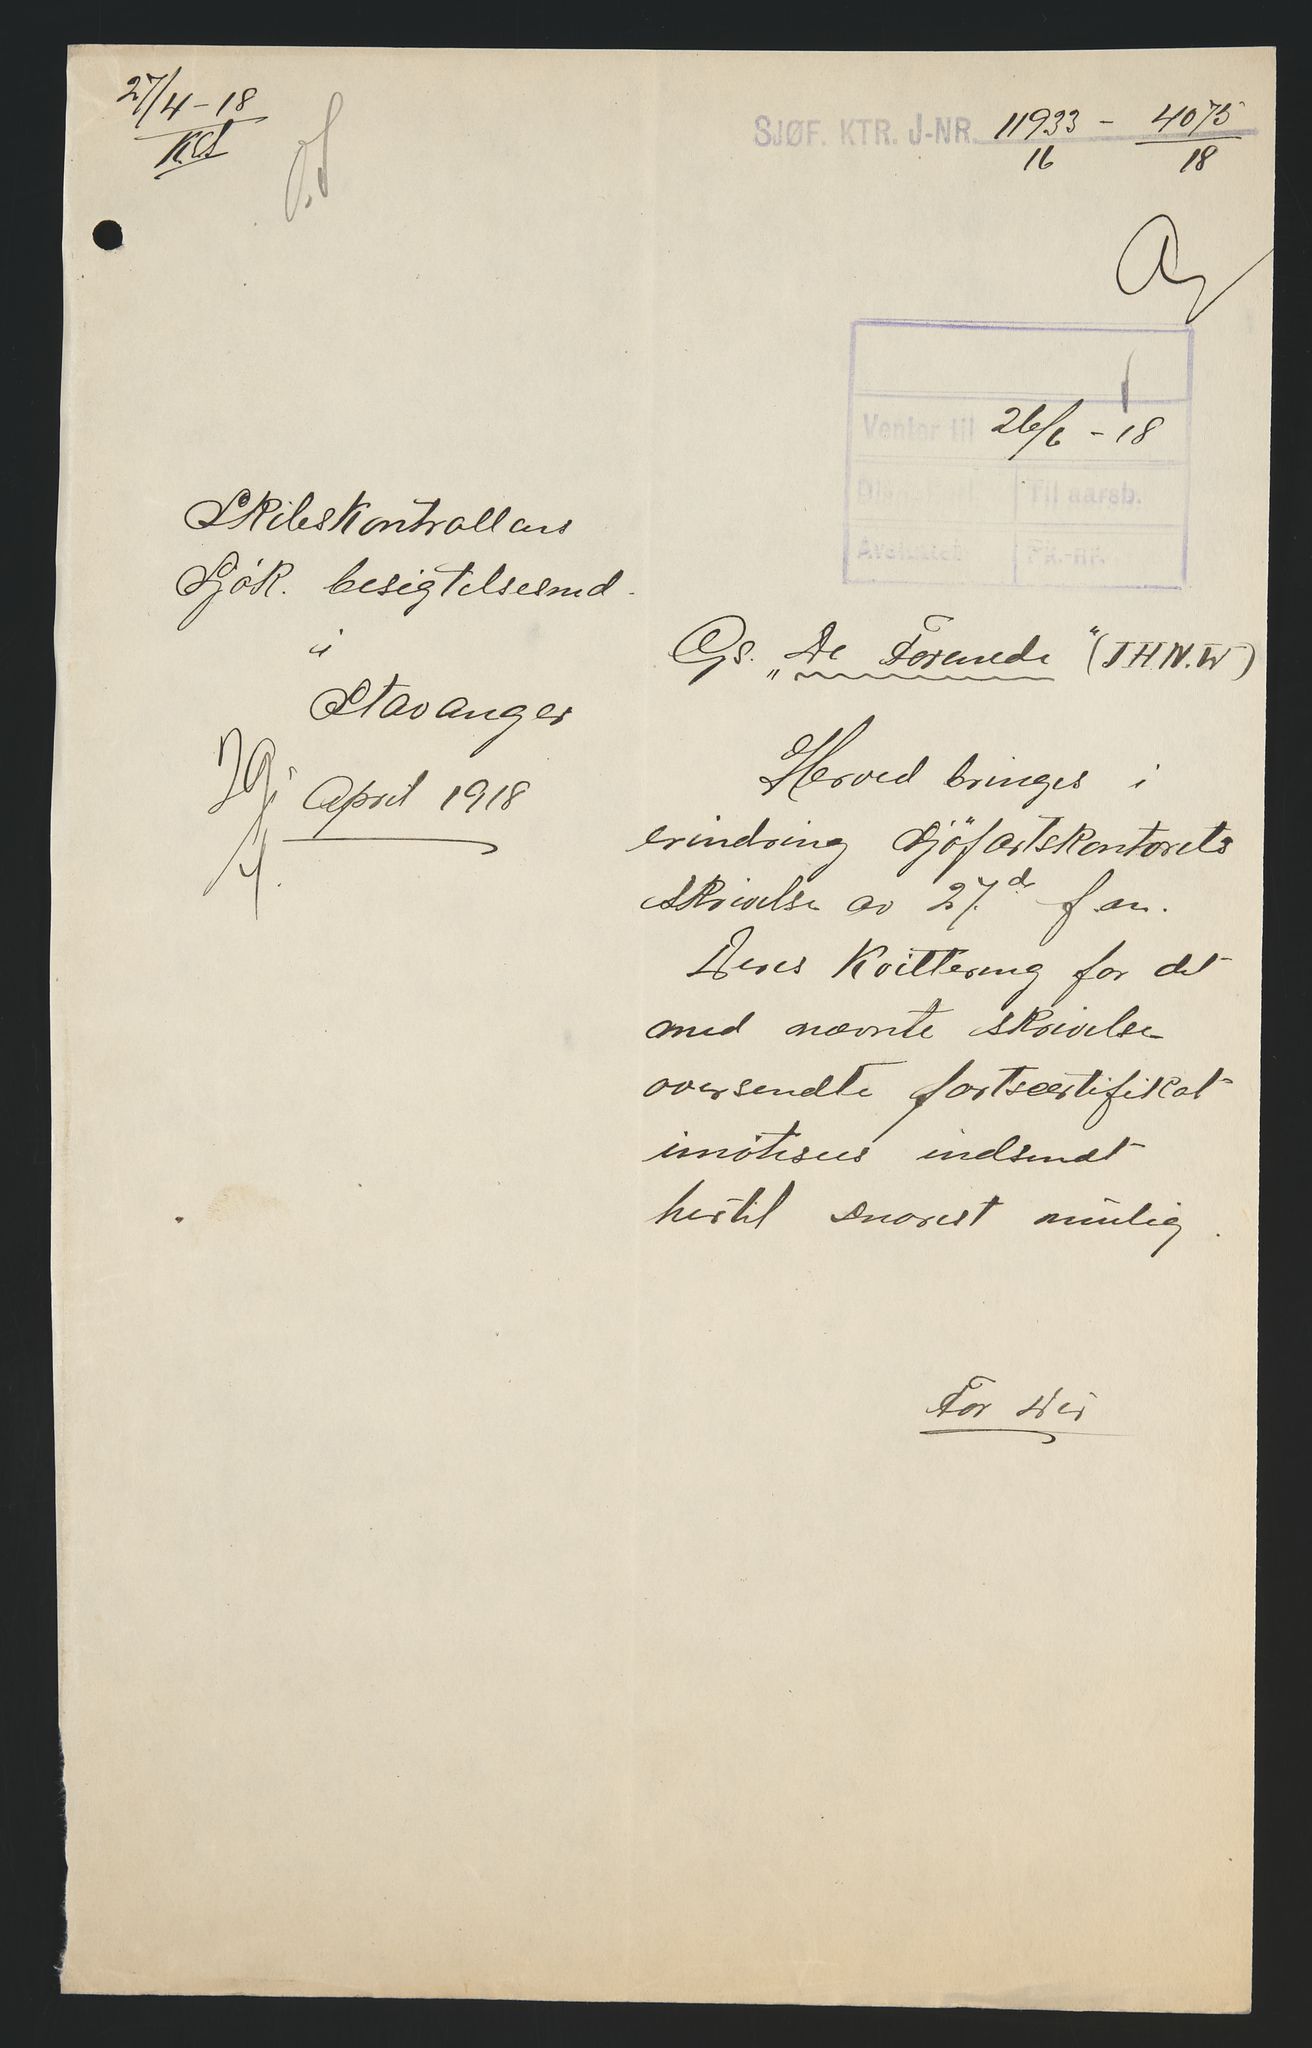 27/4-18
SJØF. KTR. J-NR. 11933 - 4075
16 18
Venter til 26/6 - 18
Til aarsb.
Avsluttet Pk.-nr.
Skibskontrollens
Sjök. besigtelsesmd.
i
Stavanger
April 1918
Gs. „De Forenede" (J.H.N.W)
Herved bringes i
erindring Sjöfartskontorets
skrivelse av 27.de f.m.
Deres Kvittering for det
med nævnte skrivelse
oversendte fartscertifikat
imötesees indsendt
hertil snarest mulig.
For Dir